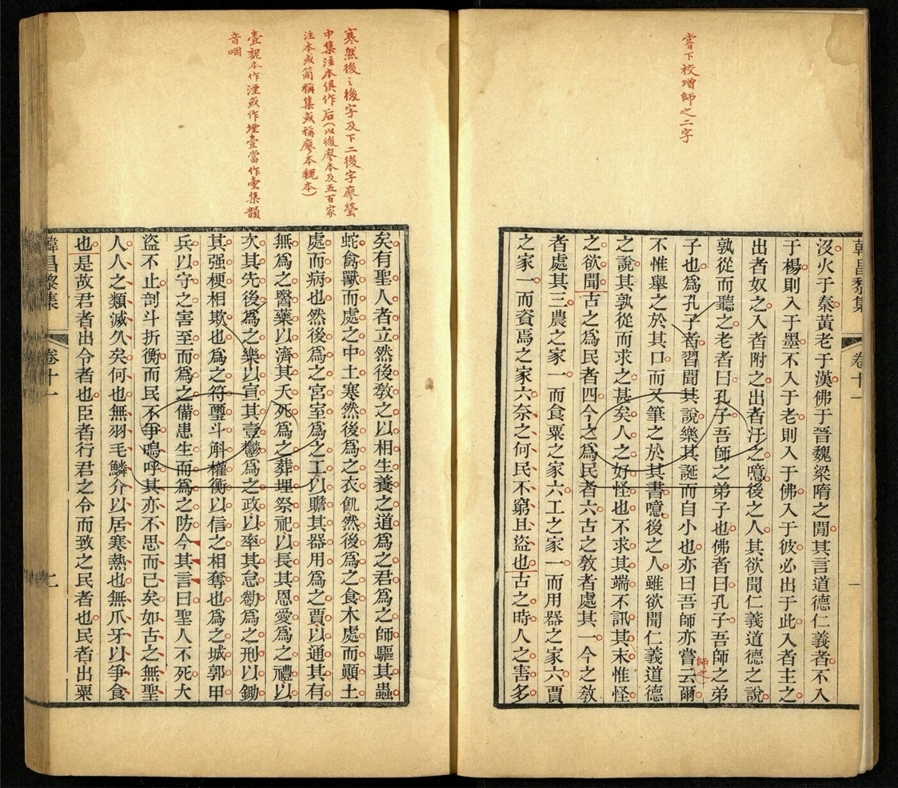 嘗下校增師之二字
韓昌黎集 卷十一 一
沒火于秦黃老于漢佛于晉魏梁隋之閒其言道德仁義者不入
于楊則入于墨不入于老則入于佛入于彼必出于此入者主之
出者奴之入者附之出者汙之噫後之人其欲聞仁義道德之說
孰從而聽之老者曰孔子吾師之弟子也佛者曰孔子吾師之弟
子也爲孔子者習聞其說樂其誕而自小也亦曰吾師亦嘗云爾
師之
不惟舉之於其口而又筆之於其書噫後之人雖欲聞仁義道德
之說其孰從而求之甚矣人之好怪也不求其端不訊其末惟怪
之欲聞古之爲民者四今之爲民者六古之敎者處其一今之敎
者處其三農之家一而食粟之家六工之家一而用器之家六賈
之家一而資焉之家六奈之何民不窮且盜也古之時人之害多
寒然後之後字及下二後字廖瑩
中集注本俱作后(以後廖本及五百家
注本或簡稱集或稱廖本魏本)
壹魏本作湮或作堙壹當作壺集韻
音咽
矣有聖人者立然後敎之以相生養之道爲之君爲之師驅其蟲
蛇禽獸而處之中土寒然後爲之衣飢然後爲之食木處而顚土
處而病也然後爲之宮室爲之工以贍其器用爲之賈以通其有
無爲之醫藥以濟其夭死爲之葬埋祭祀以長其恩愛爲之禮以
次其先後爲之樂以宣其壹鬱爲之政以率其怠勌爲之刑以鋤
其强梗相欺也爲之符璽斗斛權衡以信之相奪也爲之城郭甲
兵以守之害至而爲之備患生而爲之防今其言曰聖人不死大
盜不止剖斗折衡而民不爭嗚呼其亦不思而已矣如古之無聖
人人之類滅久矣何也無羽毛鱗介以居寒熱也無爪牙以爭食
也是故君者出令者也臣者行君之令而致之民者也民者出粟
韓昌黎集 卷十一